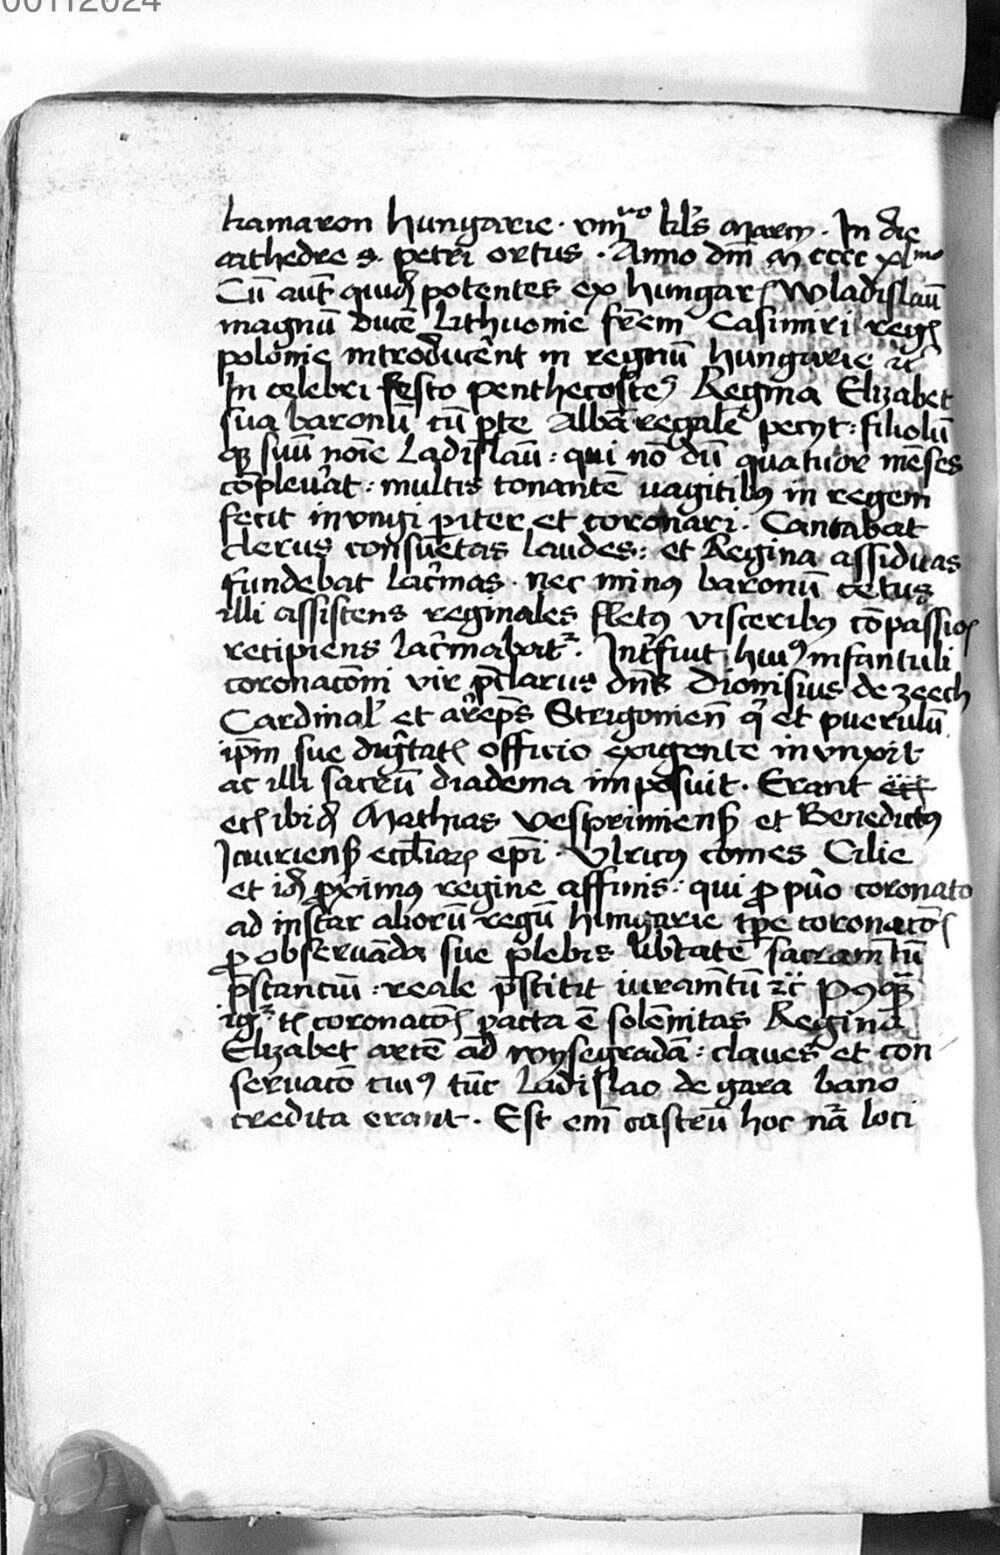 00112024
kamaron hungarie . viiiᵛᵒ klꝰs marcÿ . In die
cathedre s. petri ortus . Anno dm̄ M cccc xlᵐᵒ
Cū aūt quidꝫ potentes ex hungarꝭ Wladislaū
magnū ducē Lithuonie fr̄em Casimiri regꝭ
polonie introducēnt in regnū hungarie ⁊c̄
In celebri festo penthecostes Regina Elizabet
sua baronū cū p̄te Albā regalē pecÿt : filiolū
qꝫ suū noīe Ladislaū : qui nō dū quatuor mēses
cōpleuāt : multis tonantē uagitibꝰ in regem
fecit inungi p̄iter et coronari . Cantabat
clerus consuētas laudes : et Regina assiduas
fundebat lac̄mas . nec minꝰ baronū cetus
illi assistens reginales fletꝰ visceribꝰ cōpassioꝭ
recipiens lac̄mabatᷣ . Int̄fuit huiꝰ infantuli
coronacōni vir p̄clarus dn̄s Dionisius de zeech
Cardinalꝭ et ar̄ep̄s Strigonien̄ qͥ et puerulū
ip̄m sue dignitatꝭ officio exigente invnxit
ac illi sacrū diadema imposuit . Erant
ecꝭ ibidꝫ Mathias Vesprimienꝭ et Benedictꝰ
Jauriensꝭ eccl̄iaꝝ ep̄i . Vlricꝰ comes Cilie
et idꝫ ꝓximꝰ regine affinis : qui ꝓ pūo coronato
ad instar aliorū regū hungarie tp̄e coronacōꝭ
ꝓ obseruāda sue plebis lib̄tatē sacramētū
p̄stanciū : reale p̄stitit iuramētū ⁊c̄ Pꝰqꝫ
igᷣ tꝭ coronacōꝭ pacta ē solēnitas Regina
Elizabet arcē ad wysegradā : claues et con
seruacō cuiꝰ tūc Ladislao de gara bano
credita erant . Est em̄ castrū hoc nā loci